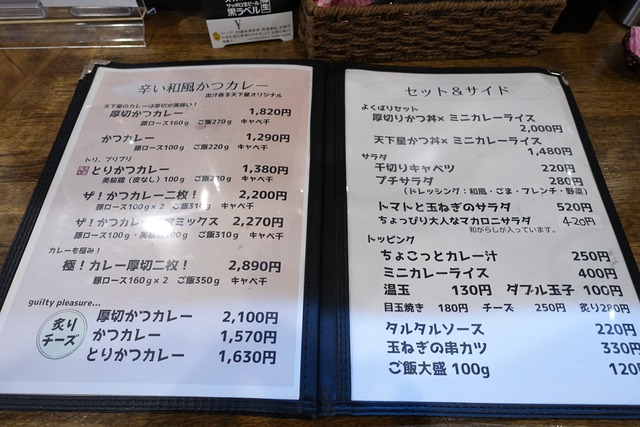 サッポロ生ビール
黒ラベル
辛い和風かつカレー
出汁香る天下星オリジナル
天下星のカレーは厚切が美味い!
厚切かつカレー 1,820円
豚ロース160g ご飯270g キャベ千
かつカレー 1,290円
豚ロース100g ご飯220g キャベ千
トリ、プリプリ
とりかつカレー 1,380円
美桜鶏(皮なし)100g ご飯220g キャベ千
ザ!かつカレー二枚! 2,200円
豚ロース100g×2 ご飯310g キャベ千
ザ!かつカレー ミックス 2,270円
豚ロース100g・美桜鶏100g ご飯310g キャベ千
カレーも極み!
極!カレー厚切二枚! 2,890円
豚ロース160g×2 ご飯350g キャベ千
guilty pleasure...
炙りチーズ
厚切かつカレー 2,100円
かつカレー 1,570円
とりかつカレー 1,630円
セット&サイド
よくばりセット
厚切りかつ丼× ミニカレーライス
2,000円
天下星かつ丼× ミニカレーライス
1,480円
サラダ
千切りキャベツ 220円
プチサラダ 280円
(ドレッシング:和風・ごま・フレンチ・野菜)
トマトと玉ねぎのサラダ 520円
ちょっぴり大人なマカロニサラダ 420円
和がらしが入っています。
トッピング
ちょこっとカレー汁 250円
ミニカレーライス 400円
温玉 130円 ダブル玉子 100円
目玉焼き 180円 チーズ 250円 炙り280円
タルタルソース 220円
玉ねぎの串カツ 330円
ご飯大盛 100g 120円